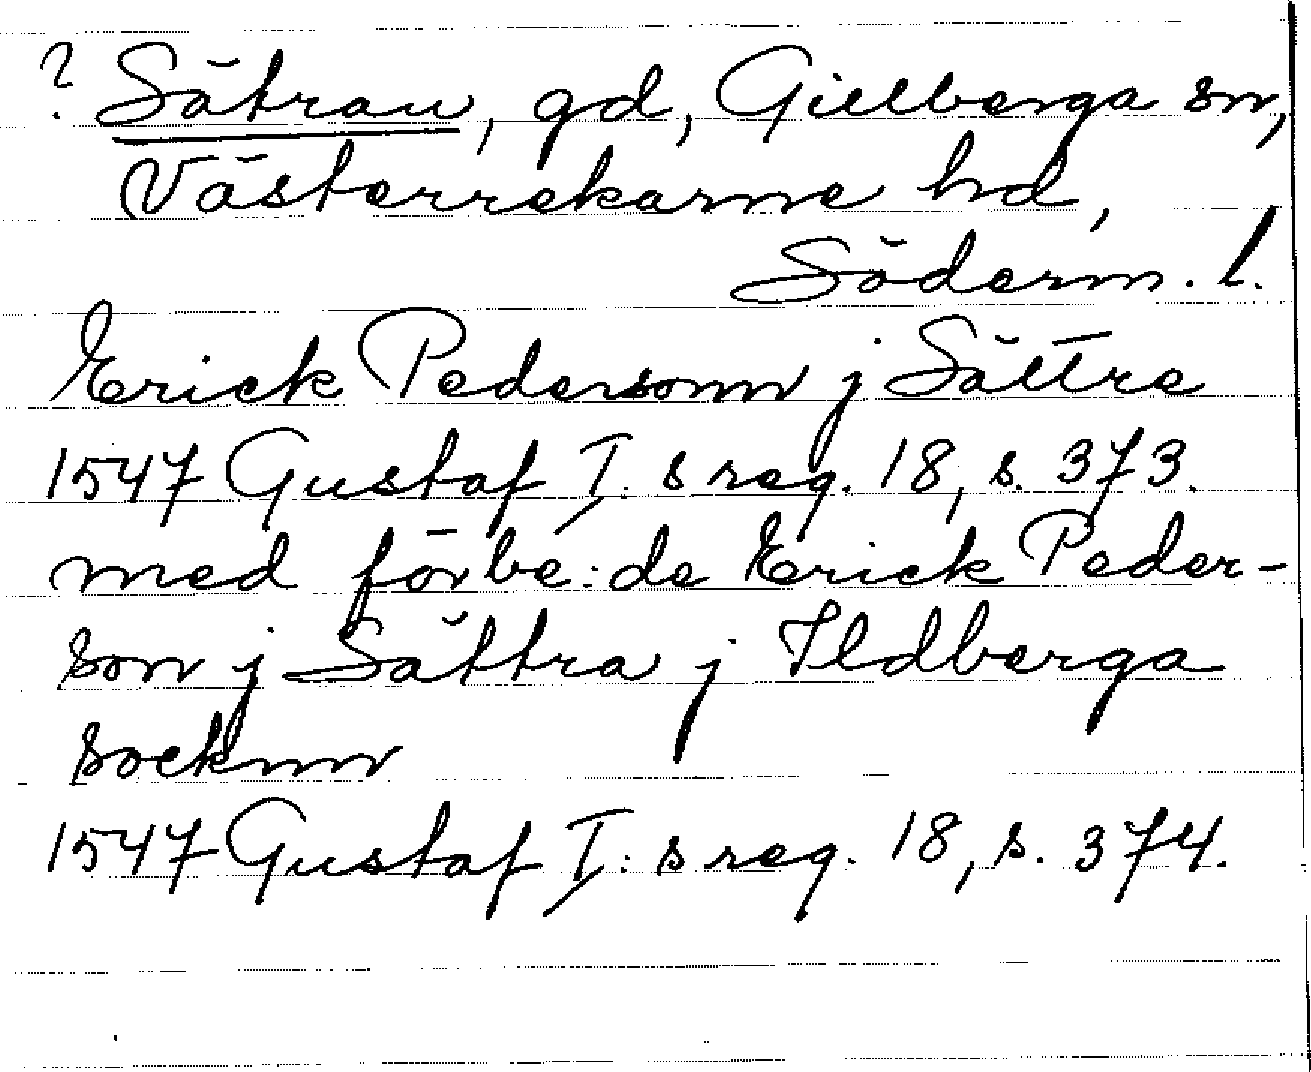 ? Sätran, gd, Gillberga sn,
Västerrekarne hd,
Söderm. l.
Erick Pedersonn j Sättre
1547 Gustaf I:s reg. 18, s. 373.
med förbe:de Erick Peder-
son j Sättra j Ildberga
socknn
1547 Gustaf I:s reg. 18, s. 374.